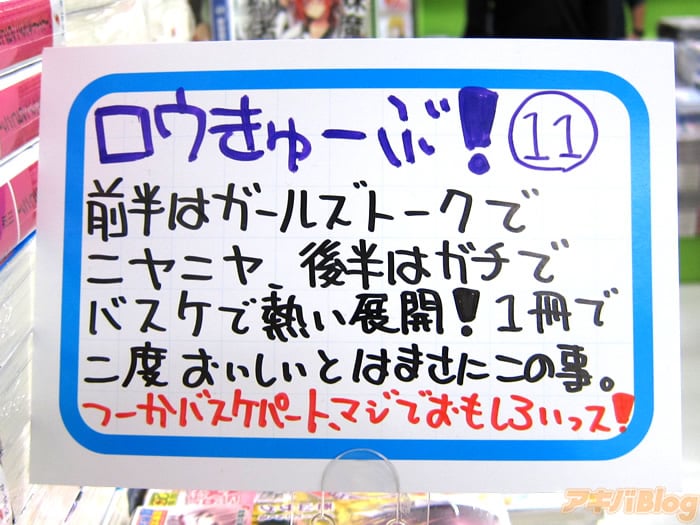 ロウきゅーぶ! ⑪
前半はガールズトークで
ニヤニヤ、後半はガチで
バスケで熱い展開!1冊で
二度おいしいとはまさにこの事。
つーかバスケパート、マジでおもしろいっス!
アキバBlog